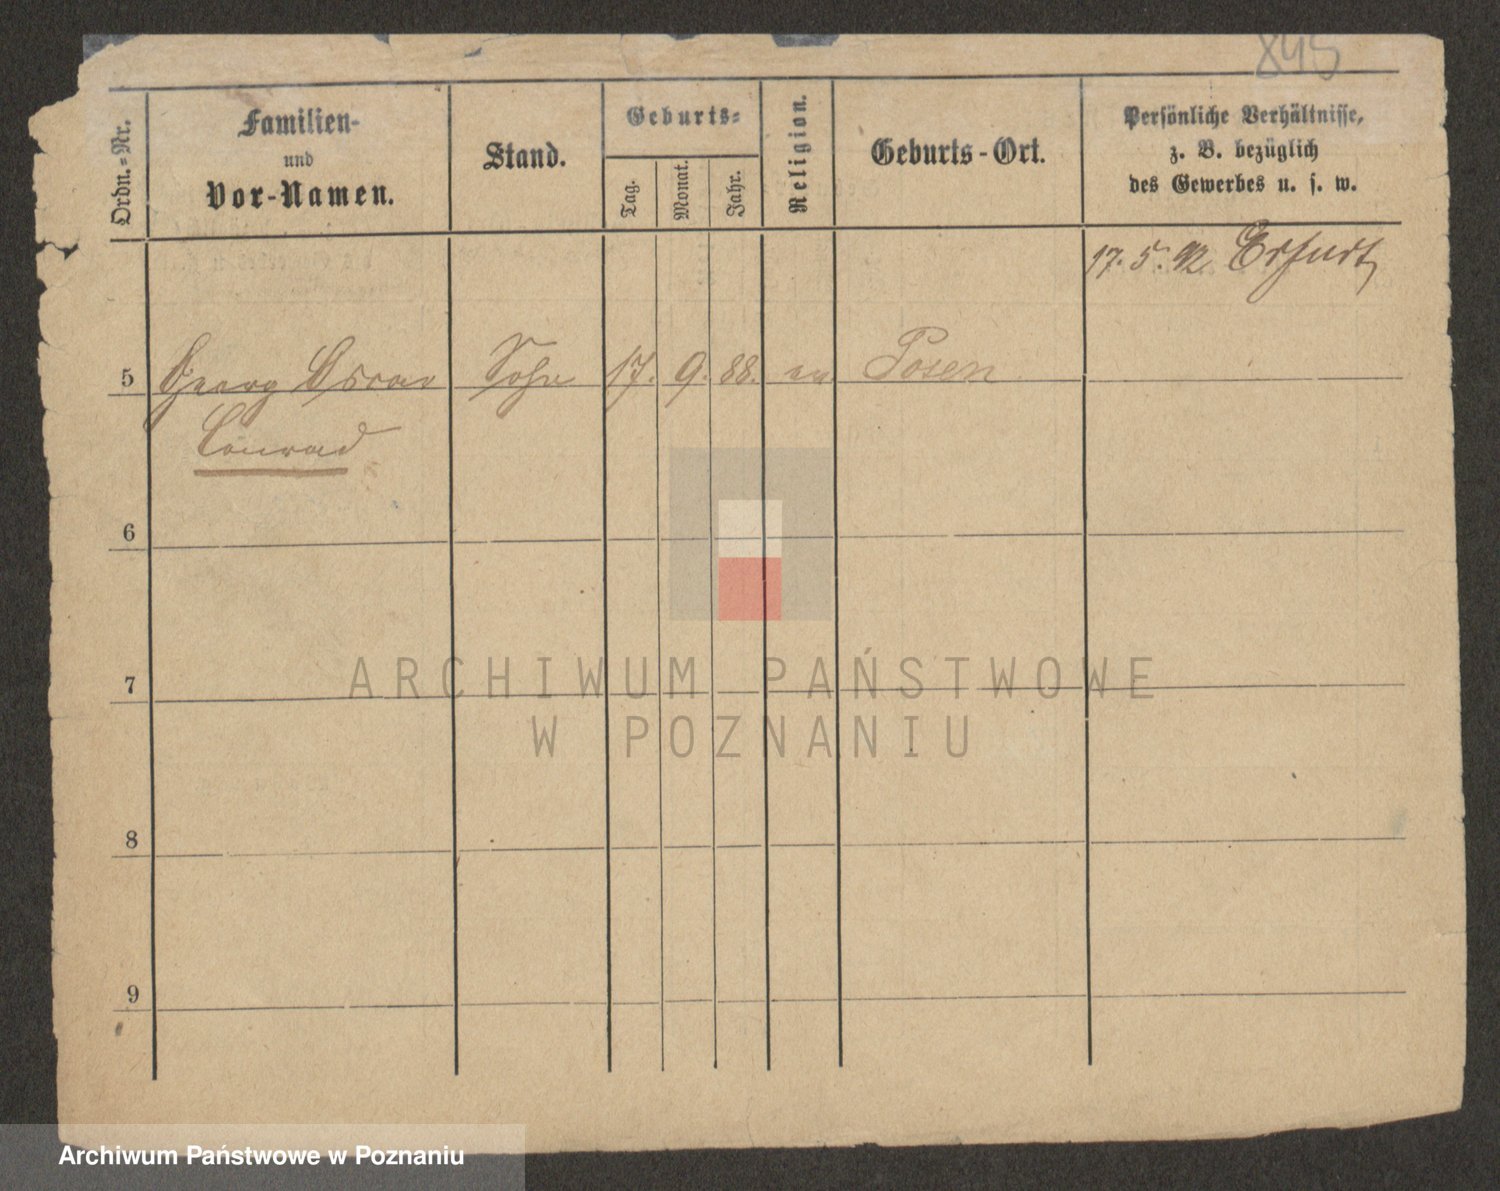 845
Ordn.-Nr.
Familien-
und
Vor-Namen.
Stand.
Geburts-
Tag.
Monat.
Jahr.
Religion.
Geburts-Ort.
Persönliche Verhältnisse,
z. B. bezüglich
des Gewerbes u. s. w.
17. 5. 92. Erfurt
5 Georg Oscar Sohn 17. 9. 88. ev. Posen
Conrad
6
7
8
9
ARCHIWUM PAŃSTWOWE
W POZNANIU
Archiwum Państwowe w Poznaniu